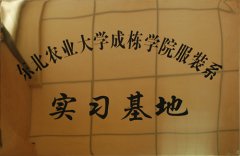 东北农业大学成栋学院服装系
实习基地